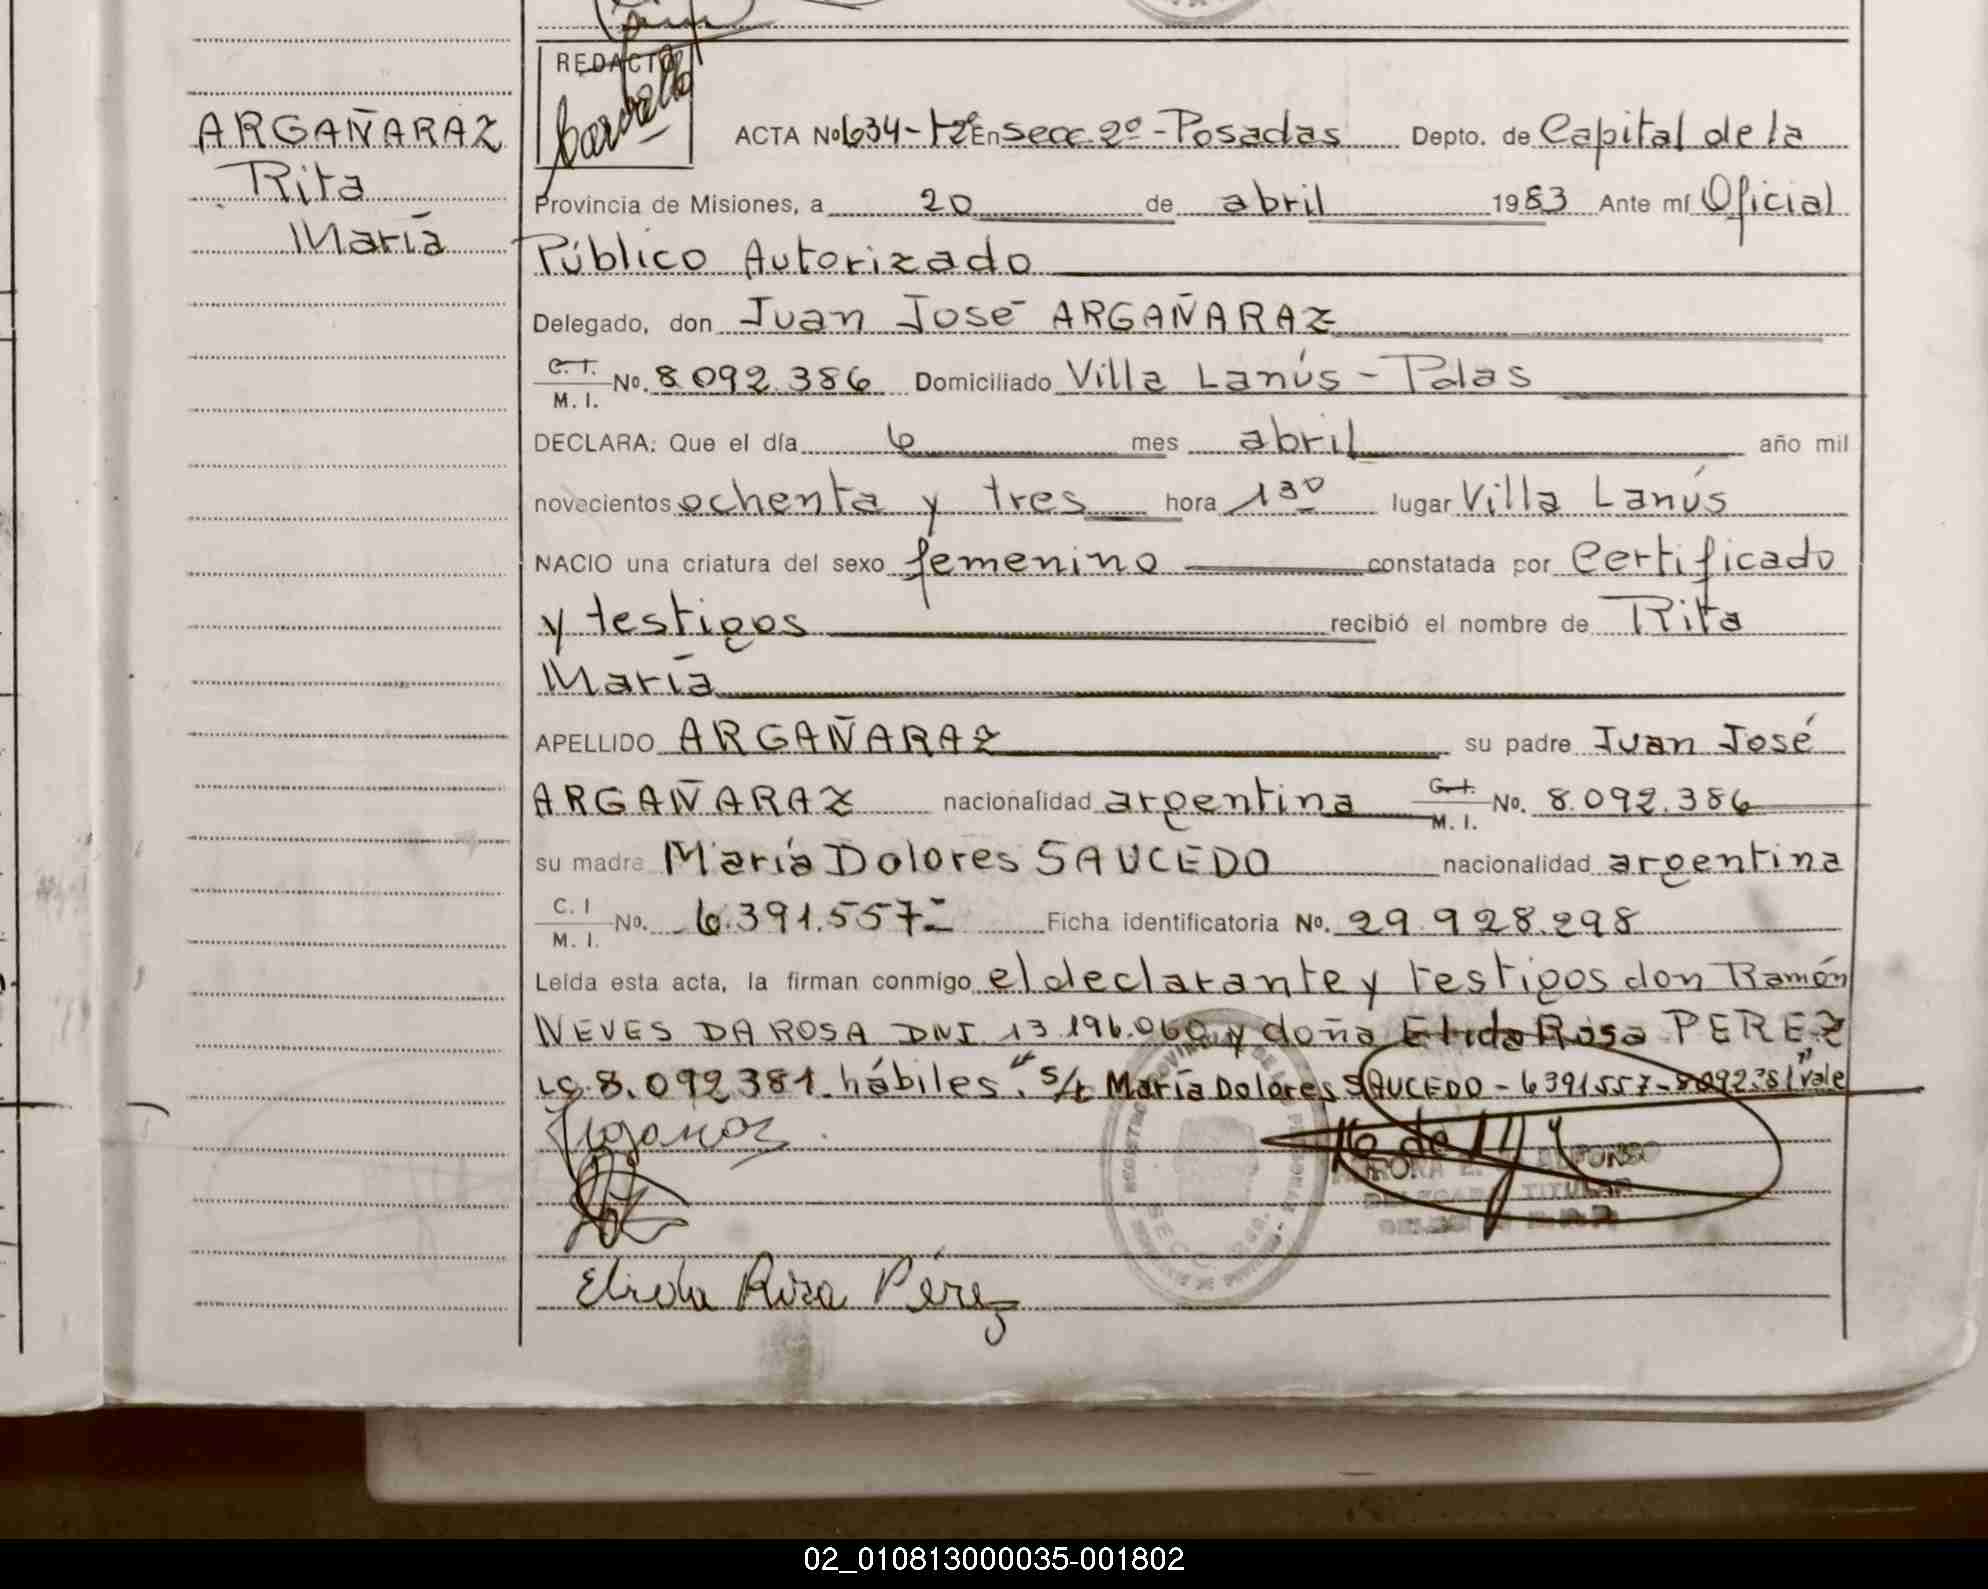 REDACTO
ARGAÑARAZ
Rita
María
ACTA No 634-Tº2º En Secc. 2º - Posadas Depto. de Capital de la
Provincia de Misiones, a 20 de abril 1983 Ante mí Oficial
Público Autorizado
Delegado, don Juan José ARGAÑARAZ
C. I. M. I. No. 8.092.386 Domiciliado Villa Lanús - Pdas
DECLARA: Que el día 6 mes abril año mil
novecientos ochenta y tres hora 13º lugar Villa Lanús
NACIO una criatura del sexo femenino constatada por Certificado
y testigos recibió el nombre de Rita
María
APELLIDO ARGAÑARAZ su padre Juan José
ARGAÑARAZ nacionalidad argentina C. I. M. I. No. 8.092.386
su madre María Dolores SAUCEDO nacionalidad argentina
C. I M. I. No. 6.391.557- Ficha identificatoria No. 29.928.298
Leída esta acta, la firman conmigo el declarante y testigos don Ramón
NEVES DA ROSA DNI 13.196.060 y doña Elida Rosa PEREZ
LC 8.092381 hábiles. "S/r María Dolores SAUCEDO - 6391557-8092381" vale
Elida Rosa Pérez
02_010813000035-001802